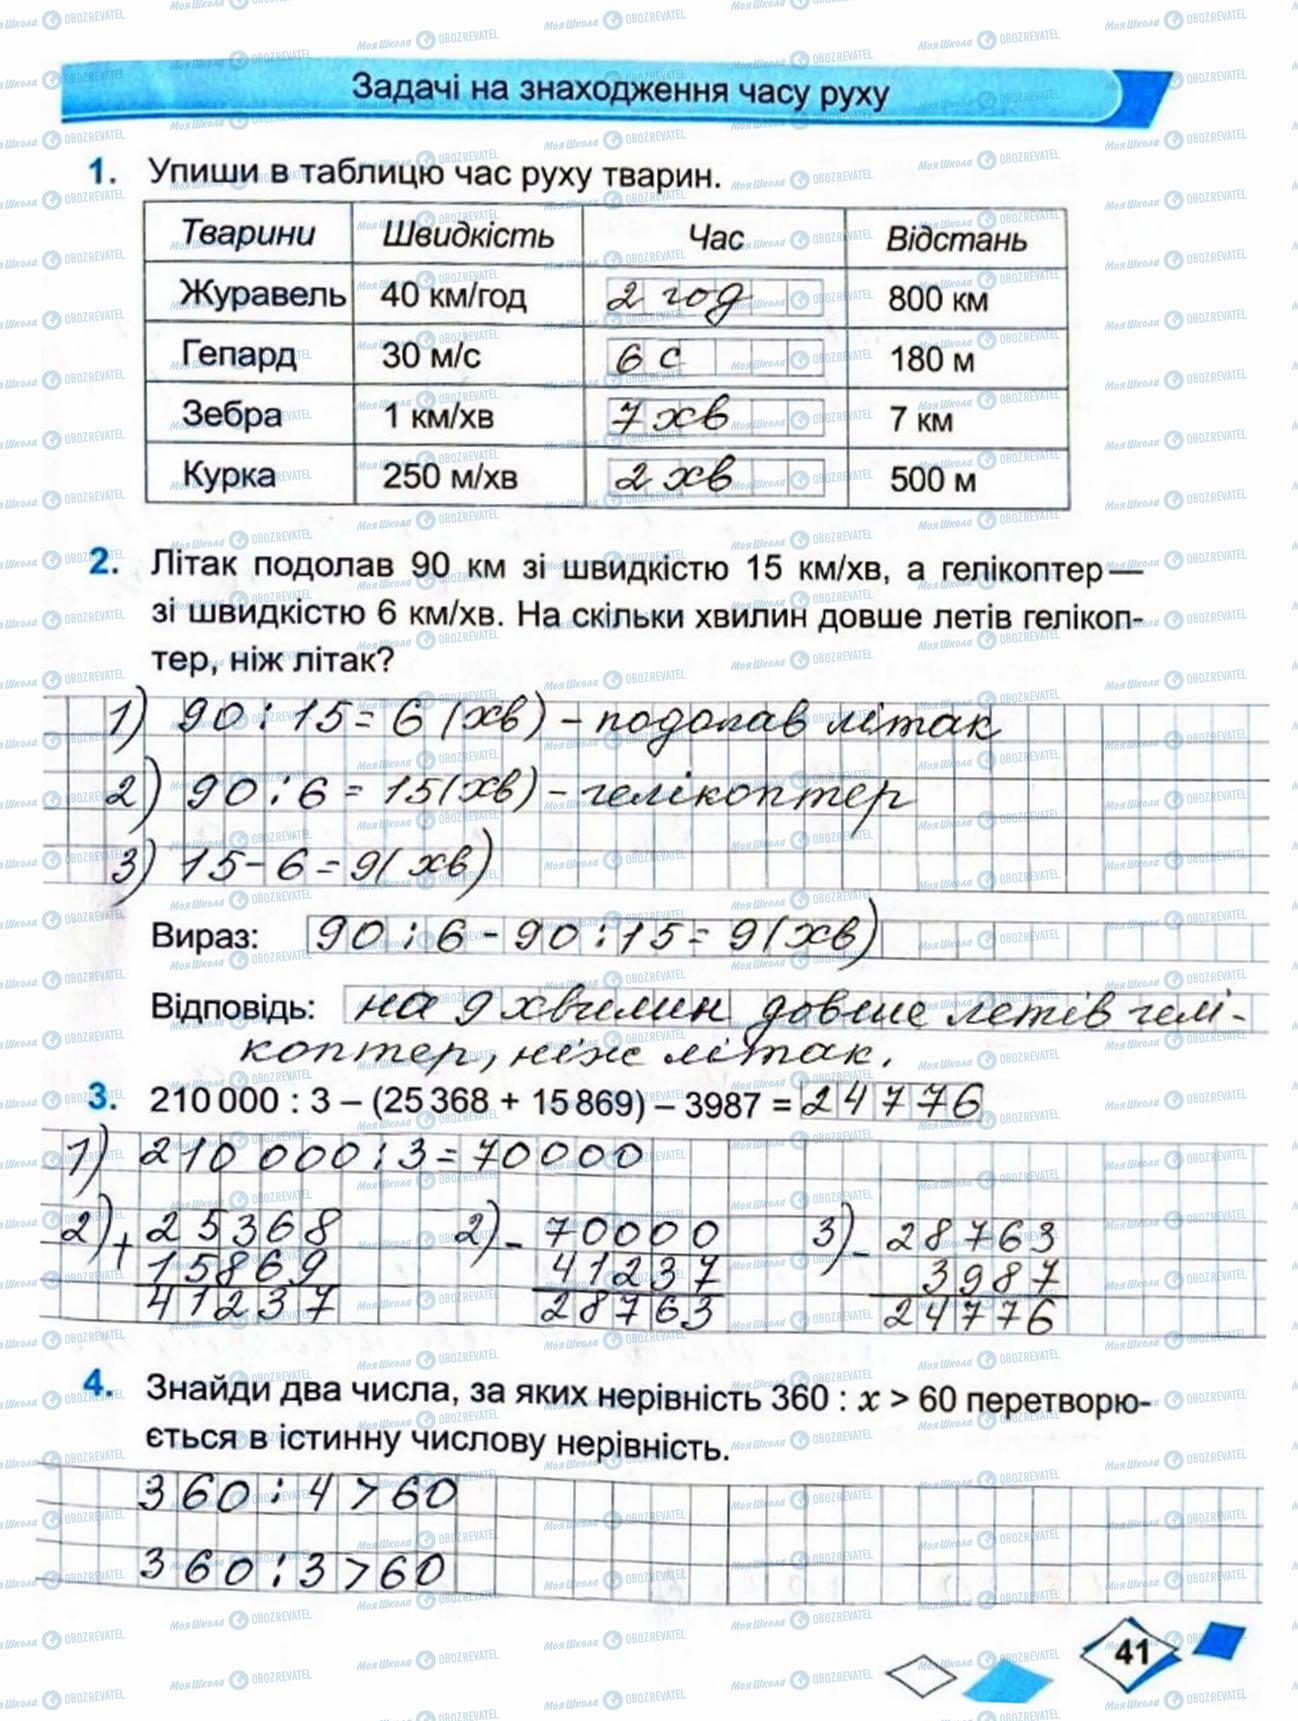 Задачі на знаходження часу руху
1. Упиши в таблицю час руху тварин.
Тварини Швидкість Час Відстань
Журавель 40 км/год 2 год 800 км
Гепард 30 м/с 6 с 180 м
Зебра 1 км/хв 7 хв 7 км
Курка 250 м/хв 2 хв 500 м
2. Літак подолав 90 км зі швидкістю 15 км/хв, а гелікоптер —
зі швидкістю 6 км/хв. На скільки хвилин довше летів гелікоп-
тер, ніж літак?
1) 90 : 15 = 6 (хв) - подолав літак
2) 90 : 6 = 15 (хв) - гелікоптер
3) 15 - 6 = 9 (хв)
Вираз: 90 : 6 - 90 : 15 = 9 (хв)
Відповідь: на 9 хвилин довше летів гелі-
коптер, ніж літак.
3. 210 000 : 3 – (25 368 + 15 869) – 3987 = 24776
1) 210 000 : 3 = 70000
2) + 25368 2) - 70000 3) - 28763
15869 41237 3987
41237 28763 24776
4. Знайди два числа, за яких нерівність 360 : x > 60 перетворю-
ється в істинну числову нерівність.
360 : 4 > 60
360 : 3 > 60
41